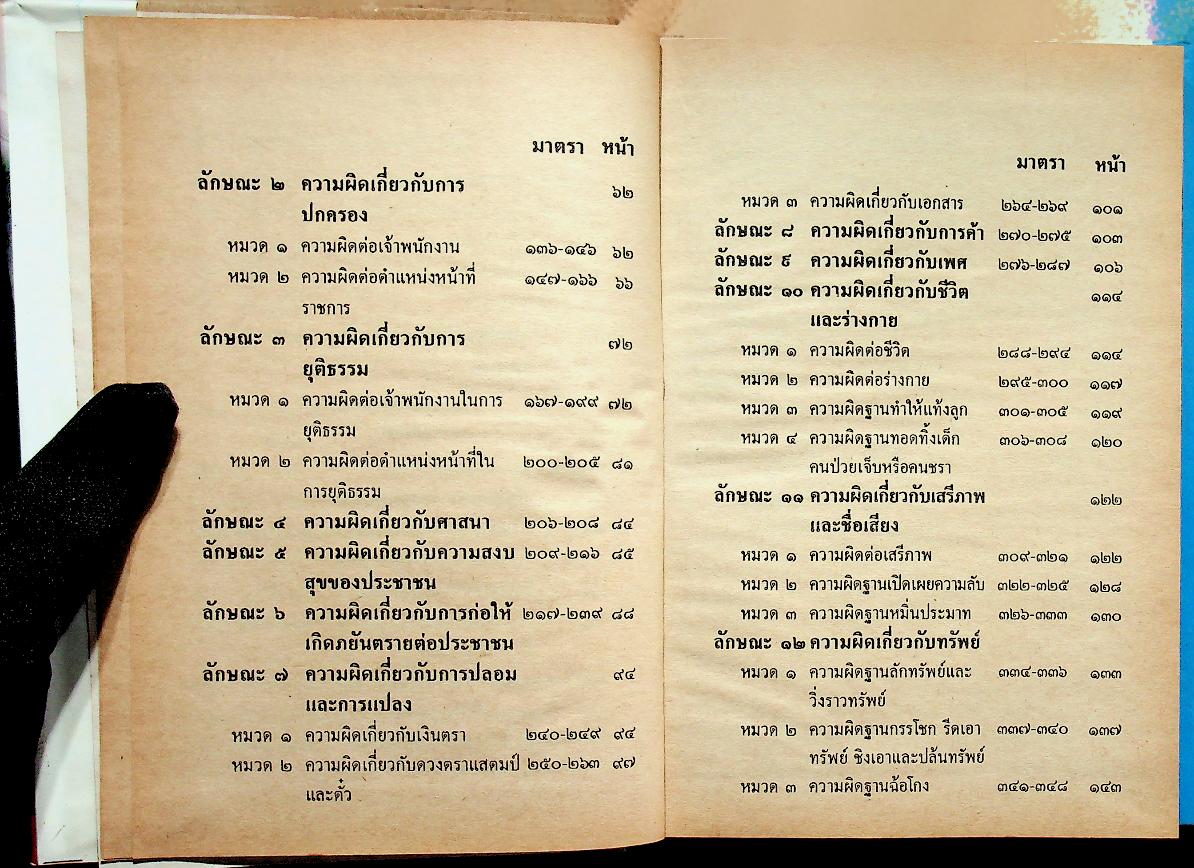 มาตรา หน้า
ลักษณะ ๒ ความผิดเกี่ยวกับการ ๖๒
ปกครอง
หมวด ๑ ความผิดต่อเจ้าพนักงาน ๑๓๖-๑๔๖ ๖๒
หมวด ๒ ความผิดต่อตำแหน่งหน้าที่ ๑๔๗-๑๖๖ ๖๖
ราชการ
ลักษณะ ๓ ความผิดเกี่ยวกับการ ๗๒
ยุติธรรม
หมวด ๑ ความผิดต่อเจ้าพนักงานในการ ๑๖๗-๑๙๙ ๗๒
ยุติธรรม
หมวด ๒ ความผิดต่อตำแหน่งหน้าที่ใน ๒๐๐-๒๐๕ ๘๑
การยุติธรรม
ลักษณะ ๔ ความผิดเกี่ยวกับศาสนา ๒๐๖-๒๐๘ ๘๔
ลักษณะ ๕ ความผิดเกี่ยวกับความสงบ ๒๐๙-๒๑๖ ๘๕
สุขของประชาชน
ลักษณะ ๖ ความผิดเกี่ยวกับการก่อให้ ๒๑๗-๒๓๙ ๘๘
เกิดภยันตรายต่อประชาชน
ลักษณะ ๗ ความผิดเกี่ยวกับการปลอม ๙๔
และการแปลง
หมวด ๑ ความผิดเกี่ยวกับเงินตรา ๒๔๐-๒๔๙ ๙๔
หมวด ๒ ความผิดเกี่ยวกับดวงตราแสตมป์ ๒๕๐-๒๖๓ ๙๗
และตั๋ว
มาตรา หน้า
หมวด ๓ ความผิดเกี่ยวกับเอกสาร ๒๖๔-๒๖๙ ๑๐๑
ลักษณะ ๘ ความผิดเกี่ยวกับการค้า ๒๗๐-๒๗๕ ๑๐๓
ลักษณะ ๙ ความผิดเกี่ยวกับเพศ ๒๗๖-๒๘๗ ๑๐๖
ลักษณะ ๑๐ ความผิดเกี่ยวกับชีวิต ๑๑๔
และร่างกาย
หมวด ๑ ความผิดต่อชีวิต ๒๘๘-๒๙๔ ๑๑๔
หมวด ๒ ความผิดต่อร่างกาย ๒๙๕-๓๐๐ ๑๑๗
หมวด ๓ ความผิดฐานทำให้แท้งลูก ๓๐๑-๓๐๕ ๑๑๙
หมวด ๔ ความผิดฐานทอดทิ้งเด็ก ๓๐๖-๓๐๘ ๑๒๐
คนป่วยเจ็บหรือคนชรา
ลักษณะ ๑๑ ความผิดเกี่ยวกับเสรีภาพ ๑๒๒
และชื่อเสียง
หมวด ๑ ความผิดต่อเสรีภาพ ๓๐๙-๓๒๑ ๑๒๒
หมวด ๒ ความผิดฐานเปิดเผยความลับ ๓๒๒-๓๒๕ ๑๒๘
หมวด ๓ ความผิดฐานหมิ่นประมาท ๓๒๖-๓๓๓ ๑๓๐
ลักษณะ ๑๒ ความผิดเกี่ยวกับทรัพย์
หมวด ๑ ความผิดฐานลักทรัพย์และ ๓๓๔-๓๓๖ ๑๓๓
วิ่งราวทรัพย์
หมวด ๒ ความผิดฐานกรรโชก รีดเอา ๓๓๗-๓๔๐ ๑๓๗
ทรัพย์ ชิงเอาและปล้นทรัพย์
หมวด ๓ ความผิดฐานฉ้อโกง ๓๔๑-๓๔๘ ๑๔๓